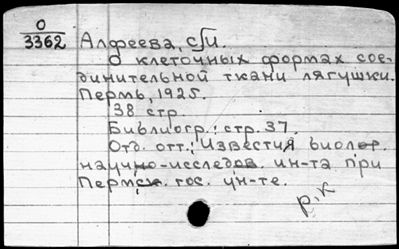 О
3362
Алфеева, С.И.
О клеточных формах сое-
динительной ткани лягушки.
Пермь, 1925.
38 стр.
Библиогр.: стр. 37.
Отд. отт.: Известия биолог.
научно-исследов. ин-та при
Пермск. гос. ун-те.
р.к